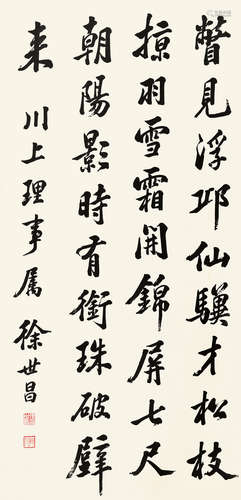 瞥見浮邛仙驥才松枝
掠羽雪霜開錦屏七尺
朝陽影時有銜珠破壁
来
川上理事屬 徐世昌